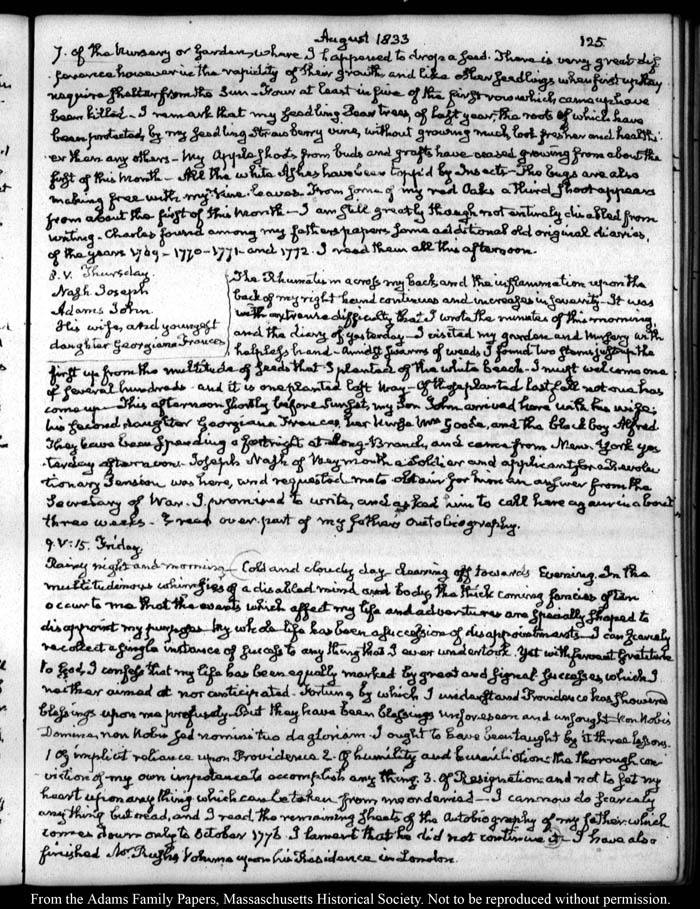 August 1833
125
7. of the Nursery or Garden, where I happened to drop a seed. There is very great dif
ference however in the rapidity of their growth, and like other seedlings when first up they
require shelter from the Sun. Four at least in five of the first row which came up have
been killed. I remark that my seedling Pear trees, of last year, the roots of which have
been protected by my seedling Strawberry vine, without growing much, look fresher and health
ier than any others. My Apple shoots from buds and grafts have ceased growing from about the
first of this Month. All the white Ashes have been topp'd by Insects. The bugs are also
making free with my Vine leaves. From some of my red Oaks a third shoot appears
from about the first of this Month. I am still greatly though not entirely disabled from
writing. Charles found among my father's papers some additional old original diaries,
of the years 1769 - 1770 - 1771 and 1772. I read them all this afternoon.
8. V. Thursday
Nash Joseph
Adams John
His wife, and youngest
daughter Georgiana Frances
The Rhumatism across my back, and the inflammation upon the
back of my right hand continues and increases in severity. It was
with extreme difficulty that I wrote the minutes of this morning
and the diary of yesterday. I visited my garden and Nursery with
helpless hand. Amidst swarms of weeds I found two stems just up the
first up from the multitude of seeds that I planted of the white beech. I must welcome one
of several hundreds. and it is one planted last May. Of those planted last fall not one has
come up. This afternoon shortly before Sunset, my Son John arrived here with his wife,
his second daughter Georgiana Frances, her Nurse Mrs Goods, and the black boy Alfred
They have been spending a fortnight at Long-Branch, and came from New-York yes
terday afternoon. Joseph Nash of Weymouth a Soldier and applicant for a Revolu
tionary Pension was here, and requested me to obtain for him an answer from the
Secretary of War. I promised to write, and asked him to call here again in about
three weeks. I read over part of my father's autobiography.
9. V:15. Friday.
Rainy night and morning. Cold and cloudy day clearing off towards Evening. In the
multitudinous whimsies of a disabled mind and body, the thick coming fancies often
occur to me that the events which affect my life and adventures are specially shaped to
disappoint my purposes. My whole life has been a succession of disappointments. I can scarcely
recollect a single instance of success to any thing that I ever undertook. Yet with fervent gratitude
to God, I confess that my life has been equally marked by great and signal successes, which I
neither aimed at nor anticipated. Fortune, by which I understand Providence has showered
blessings upon me profusely. But they have been blessings unforeseen and unsought. Non nobis
Domine, non nobis sed nomini tuo da gloriam. I ought to have been taught by it three lessons.
1 Of implicit reliance upon Providence 2. Of humility and humiliation: the thorough con
viction of my own impotence to accomplish any thing. 3. Of Resignation: and not to set my
heart upon any thing which can be taken from me or denied. I can now do scarcely
any thing but read, and I read the remaining sheets of the autobiography of my father: which
comes down only to October 1776. I lament that he did not continue it. I have also
finished Mr Rush's Volume upon his Residence in London.
From the Adams Family Papers, Massachusetts Historical Society. Not to be reproduced without permission.